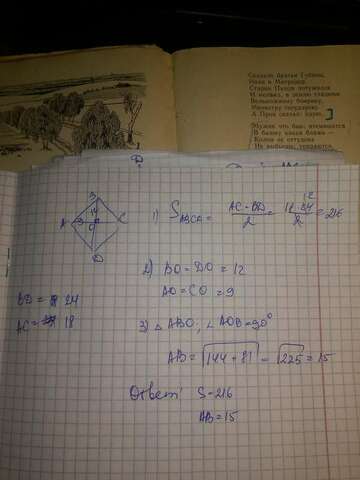 Сказали братья Губины,
Иван и Митродор.
Старик Пахом потужился
И молвил, в землю глядючи:
Вельможному боярину,
Министру государеву.
А Пров сказал: царю. ]
Мужик что бык: втемяшится
В башку какая блажь —
Колом ее оттудова
Не выбьешь: упираются,
B
A 9 12 O C
D
BD = 24
AC = 18
1) S ABCD = AC · BD / 2 = 18 · 24 / 2 = 216
12
2) BO = DO = 12
AO = CO = 9
3) △ ABO; ∠ AOB = 90°
AB = √144 + 81 = √225 = 15
Ответ: S = 216
AB = 15